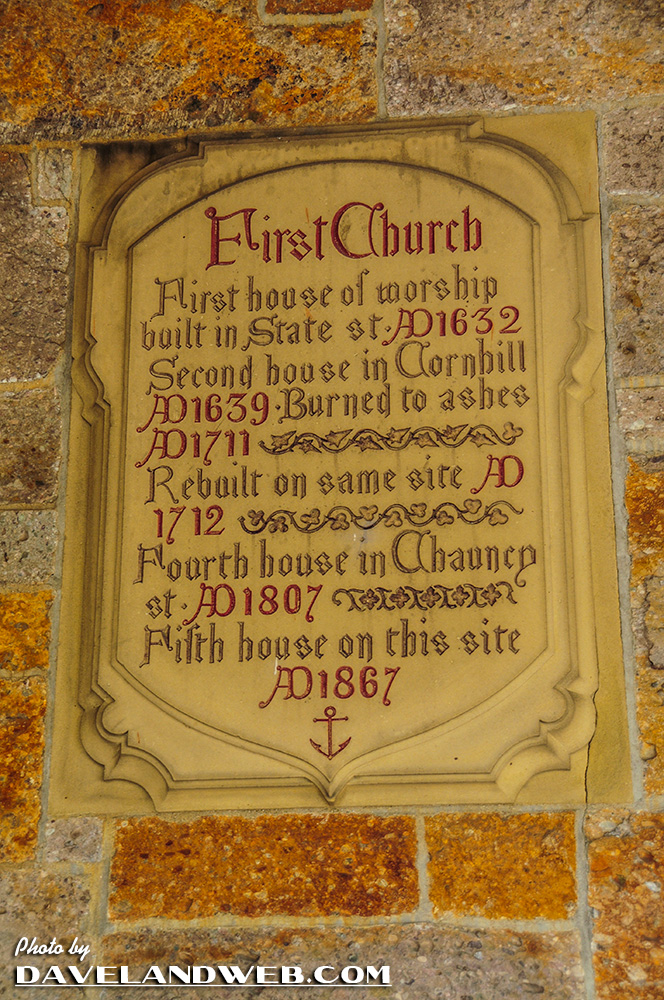 First Church
First house of worship
built in State st. AD 1632
Second house in Cornhill
AD 1639 · Burned to ashes
AD 1711
Rebuilt on same site AD
1712
Fourth house in Chauncy
st · AD 1807
Fifth house on this site
AD 1867
Photo by
DAVELANDWEB.COM